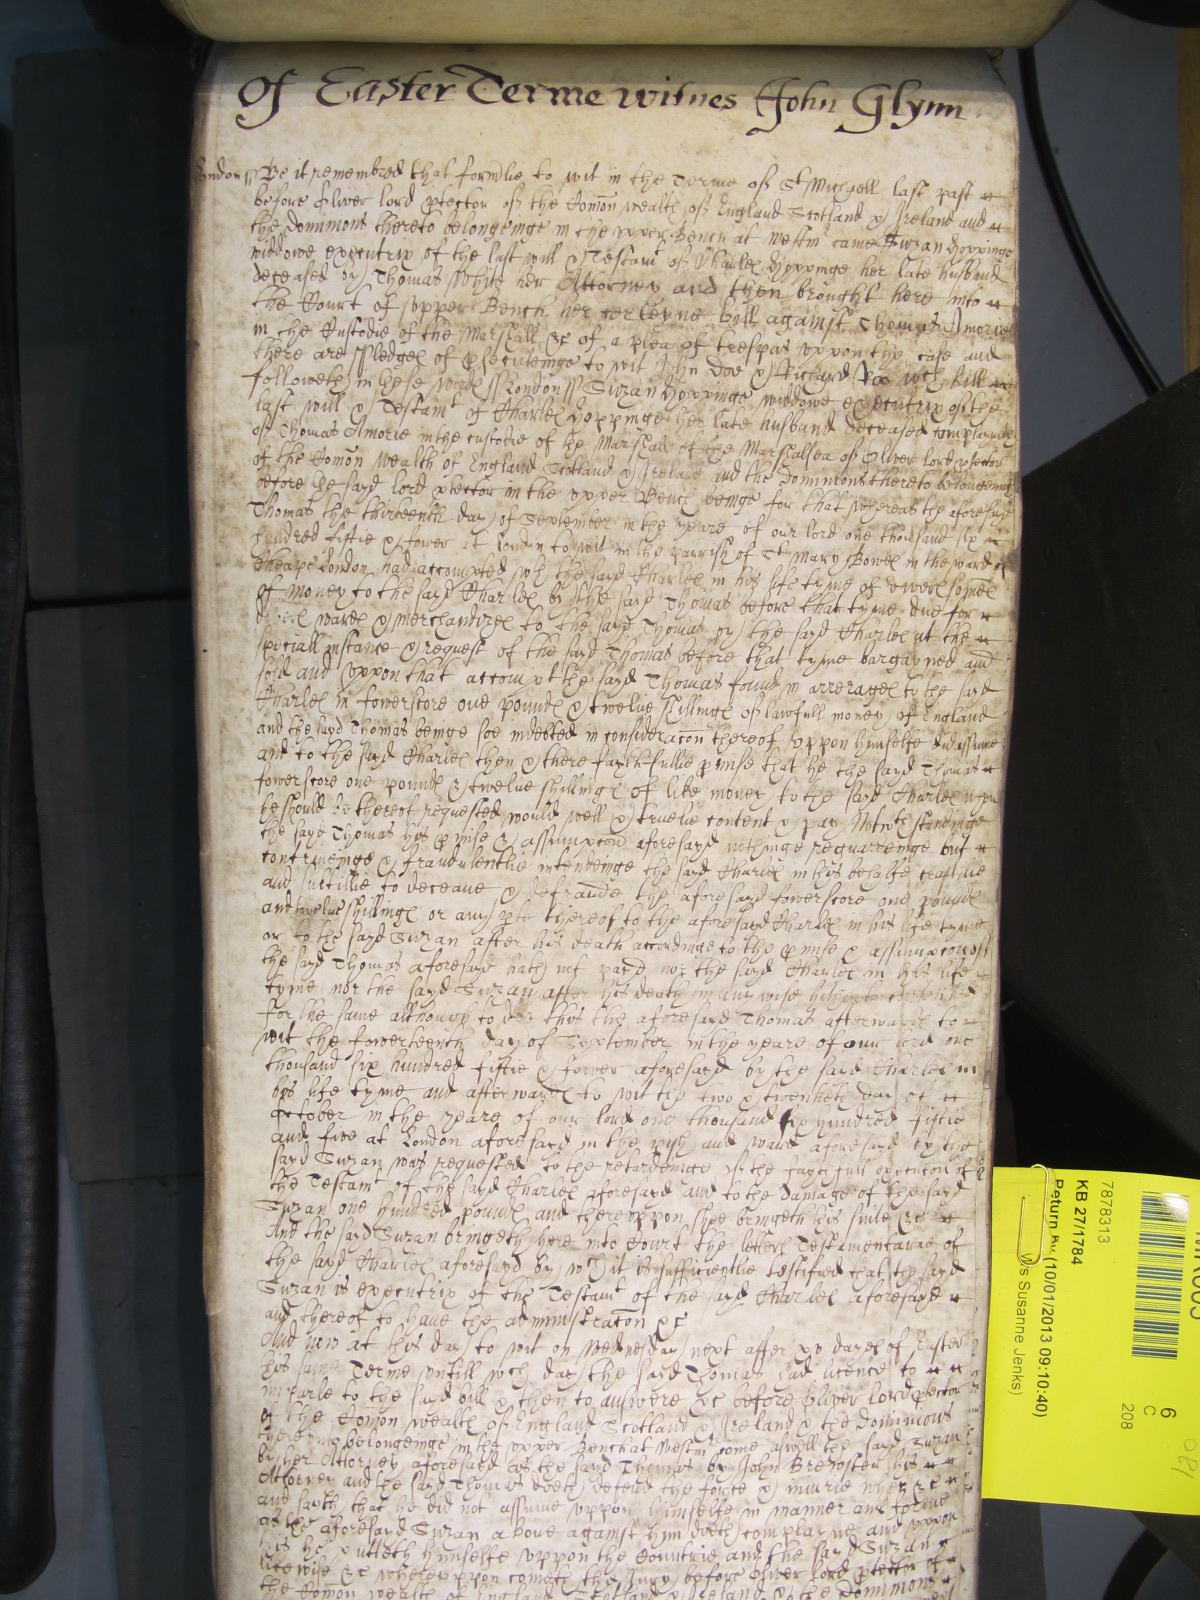 Of Easter Terme witnes John Glynn
London ss Be it remembred that formlie to wit in the Terme of St Michaell last past
before Oliver lord ptector of the Comon wealth of England Scotland & Ireland and
the Dominions thereto belongeinge in the upper Bench at Westm came Suzan Hoppinge
widdowe executrix of the last will & Testamt of Charles Hoppinge her late husband
deceased by Thomas White her Attorney and then brought here into
the Court of upper Bench her certeyne bill against Thomas Amorie
in the Custodie of the Marshall &c of a plea of trespas uppon the case and
there are Pledges of psecuteinge to wit John Doe & Richard Roe wch bill
followeth in these words ss London ss Suzan Hoppinge widdowe executrix of the
last will & Testamt of Charles Hoppinge her late husband deceased complayneth
of Thomas Amorie in the custodie of the Marshall of the Marshalsea of Oliver lord ptector
of the Comon wealth of England Scotland & Ireland and the Dominions thereto belongeinge
before the sayd lord ptector in the upper Bench beinge for that whereas the aforesayd
Thomas the thirteenth day of September in the yeare of our lord one thousand six
hundred fiftie & fower at London to wit in the parrish of St Mary Bowe in the ward of
Cheape London had accompted wth the sayd Charles in his life tyme of divers somes
of money to the sayd Charles by the sayd Thomas before that tyme due for
divers wares & merchandizes to the sayd Thomas by the sayd Charles at the
speciall instance & request of the sayd Thomas before that tyme bargayned and
sold and uppon that accompt the sayd Thomas found in arrerages to the sayd
Charles in fowerscore one pounds & twelve shillings of lawfull money of England
and the sayd Thomas beinge soe indebted in consideracon thereof uppon himselfe did assume
and to the sayd Charles then & there faythfullie pmise that he the sayd Thomas
fowerscore one pounds & twelve shillings of like money to the sayd Charles when
he should be thereof requested would well & truelie content & pay Notwthstandinge
the sayd Thomas his pmise & assumpcon aforesayd nothinge reguardeinge but
contriveinge & fraudulentlie intendinge the sayd Charles in his behalfe craftilie
and subtillie to deceave & defraude the aforesayd fowerscore one pounds
and twelve shillings or any pte thereof to the aforesayd Charles in his life tyme
or to the sayd Suzan after his death accordinge to the pmise & assumpcon of
the sayd Thomas aforesayd hath not payd nor the sayd Charles in his life
tyme nor the sayd Suzan after his death in any wise hitherto
for the same although to doe this the aforesayd Thomas afterwards to
wit the fowerteenth day of September in the yeare of our lord one
thousand six hundred fiftie & fower aforesayd by the sayd Charles in
his life tyme and afterwards to wit the two & twentieth day of
October in the yeare of our lord one thousand six hundred fiftie
and five at London aforesayd in the pish and ward aforesayd by the
sayd Suzan was requested to the retardeinge of the execucon of
the Testamt of the sayd Charles aforesayd and to the damage of the sayd
Suzan one hundred pounds and thereuppon shee bringeth his suite &c
And the sayd Suzan bringeth here into Court the letters Testamentarie of
the sayd Charles aforesayd by wch it is sufficientlie testified that the sayd
Suzan is executrix of the Testamt of the sayd Charles aforesayd
and thereof to have the administracon &c
And now at this day to wit on Wednesday next after xv dayes of Easter
this same Terme untill wch day the sayd Thomas had licence to
imparle to the sayd bill & then to answere &c before Oliver lord ptector
of the Comon wealth of England Scotland & Ireland & the Dominions
thereto belongeinge in the upper Bench at Westm come aswell the sayd Suzan
by her Attorney aforesayd as the sayd Thomas by John his
Attorney and the sayd Thomas doeth defend the force & iniurie when &c
and sayth that he did not assume uppon himselfe in manner and forme
as the aforesayd Suzan above against him doeth complayne and uppon
this he putteth himselfe uppon the Countrie and the sayd Suzan
likewise &c whereuppon cometh the Jury before Oliver lord ptector of
the Comon wealth of England Scotland & Ireland & the Dominions
7878313
KB 27/1784
Return By (10/01/2013 09:10:40)
Susanne Jenks)
6
C
208